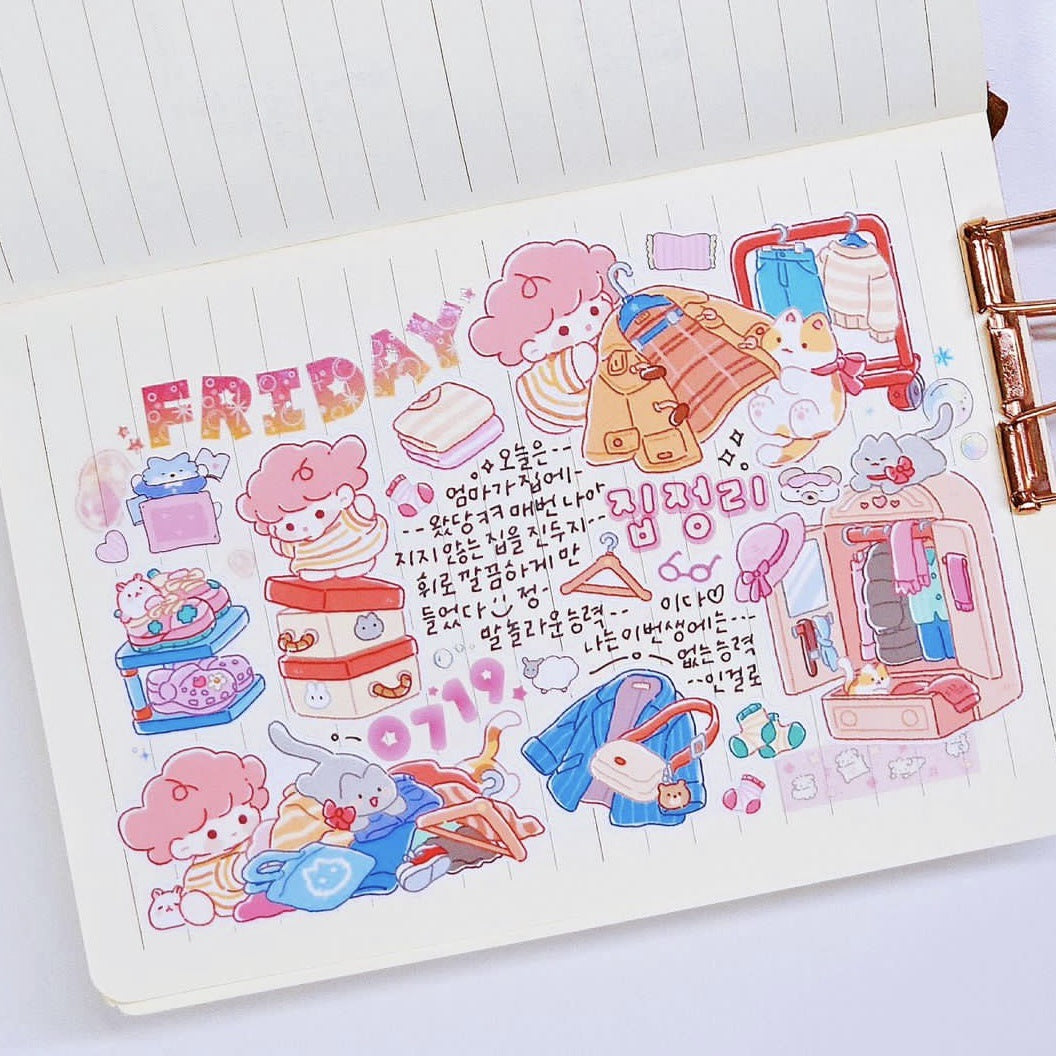 FRIDAY
오늘은--
엄마가 집에-
--왔당ㅋㅋ 매번 나아
지지 않는 집을 진두지--
휘로 깔끔하게 만
들었다 정-
말 놀라운 능력--
이다♡
나는 이번생에는---
없는 능력
--인걸로
집정리
0719